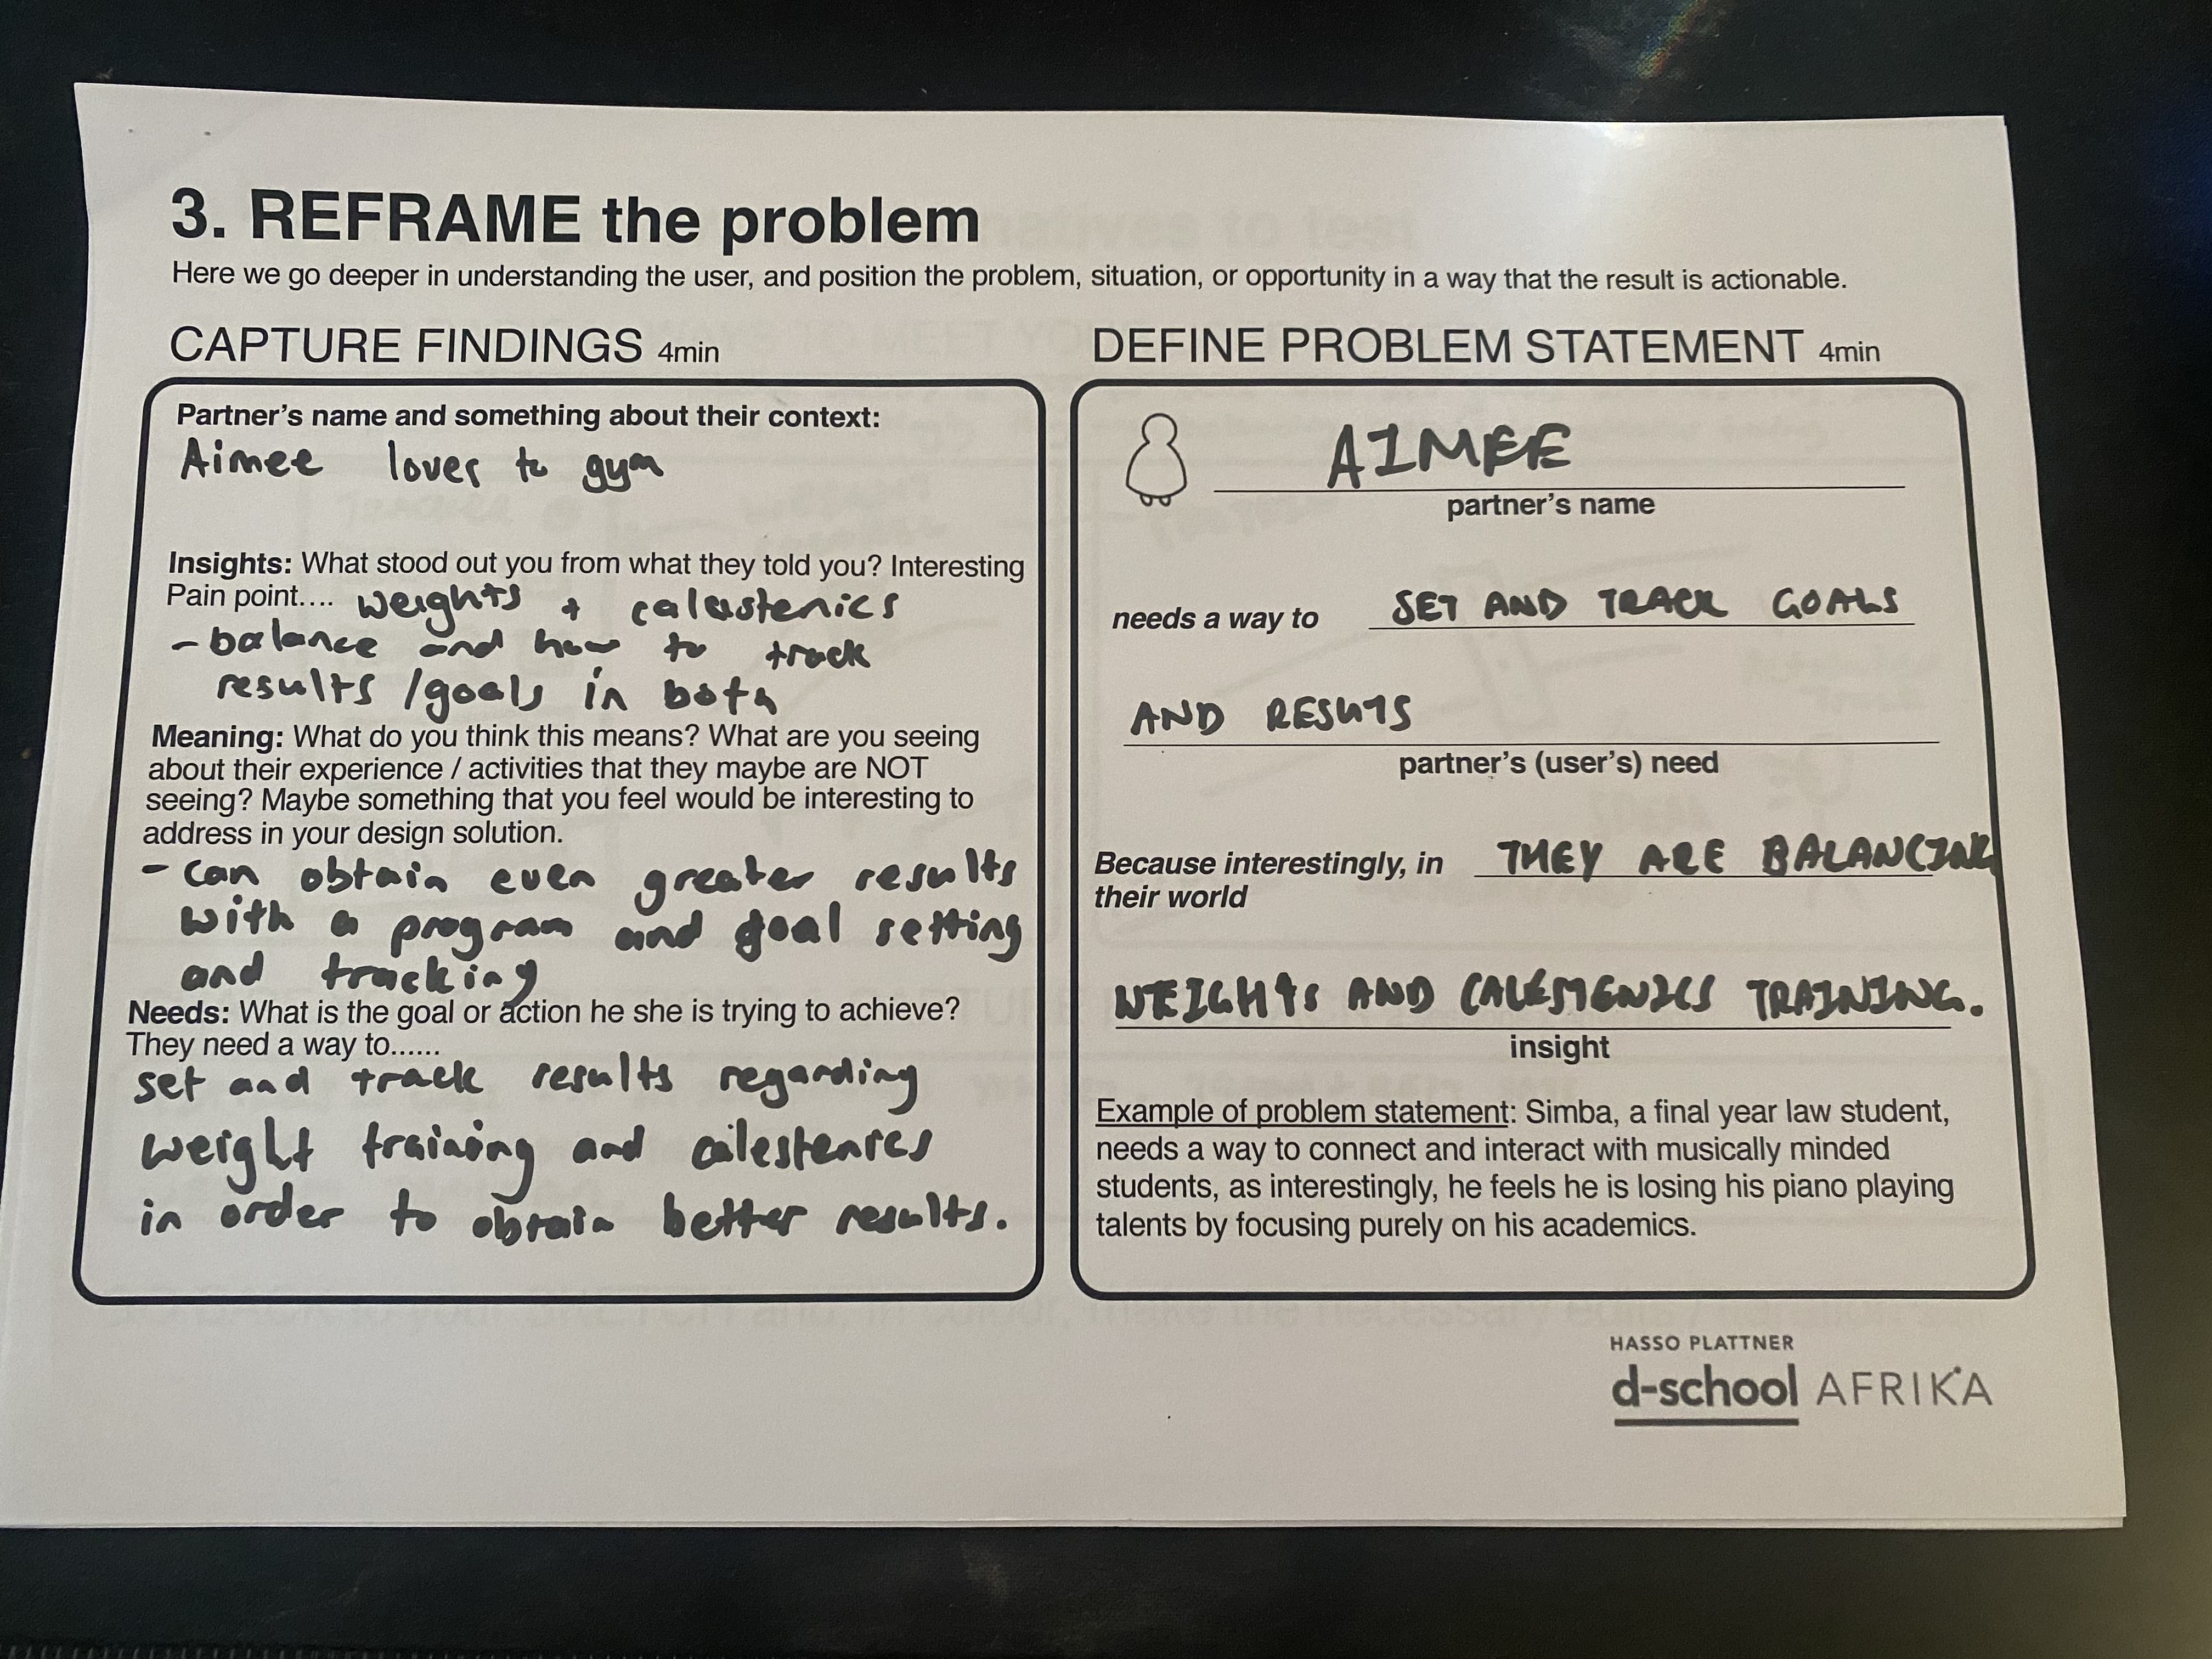 3. REFRAME the problem
Here we go deeper in understanding the user, and position the problem, situation, or opportunity in a way that the result is actionable.
CAPTURE FINDINGS 4min
Partner's name and something about their context:
Aimee loves to gym
Insights: What stood out you from what they told you? Interesting
Pain point.... weights + calestenics
- balance and how to track
results /goals in both
Meaning: What do you think this means? What are you seeing
about their experience / activities that they maybe are NOT
seeing? Maybe something that you feel would be interesting to
address in your design solution.
- can obtain even greater results
with a program and goal setting
and tracking
Needs: What is the goal or action he she is trying to achieve?
They need a way to......
set and track results regarding
weight training and calestenics
in order to obtain better results.
DEFINE PROBLEM STATEMENT 4min
AIMEE
partner's name
needs a way to SET AND TRACK GOALS
AND RESULTS
partner's (user's) need
Because interestingly, in THEY ARE BALANCING
their world
WEIGHTS AND CALESTENICS TRAINING.
insight
Example of problem statement: Simba, a final year law student,
needs a way to connect and interact with musically minded
students, as interestingly, he feels he is losing his piano playing
talents by focusing purely on his academics.
HASSO PLATTNER
d-school AFRIKA